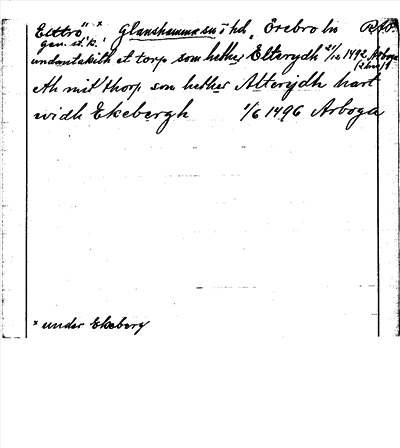 Elttrö" x Glanshammar sn o hd, Örebro ln RAP.
gen. st. k.
undantakith et torp som hether Elterydh 21/12 1492 Arboga
Ath mit thorp som hether Alterijdh hart
widh Ekebergh 1/6 1496 Arboga
x under Ekeberg